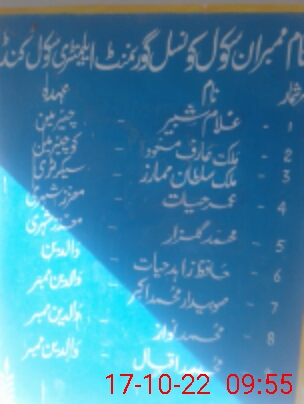 نام ممبران سکول کونسل گورنمنٹ ایلیمنٹری سکول
نمبر شمار نام عہدہ
1 - غلام شبیر - چیئرمین
2 - ملک عارف محمود - کو چیئرمین
3 - ملک سلطان ممارز - سیکرٹری
4 - عمر حیات - معزز شہری
5 - محمد گلزار - معزز شہری
6 - حافظ زاہد حیات - والدین
7 - صوبیدار محمد اکبر - والدین ممبر
8 - محمد نواز - والدین ممبر
محمد اقبال - والدین ممبر
17-10-22 09:55